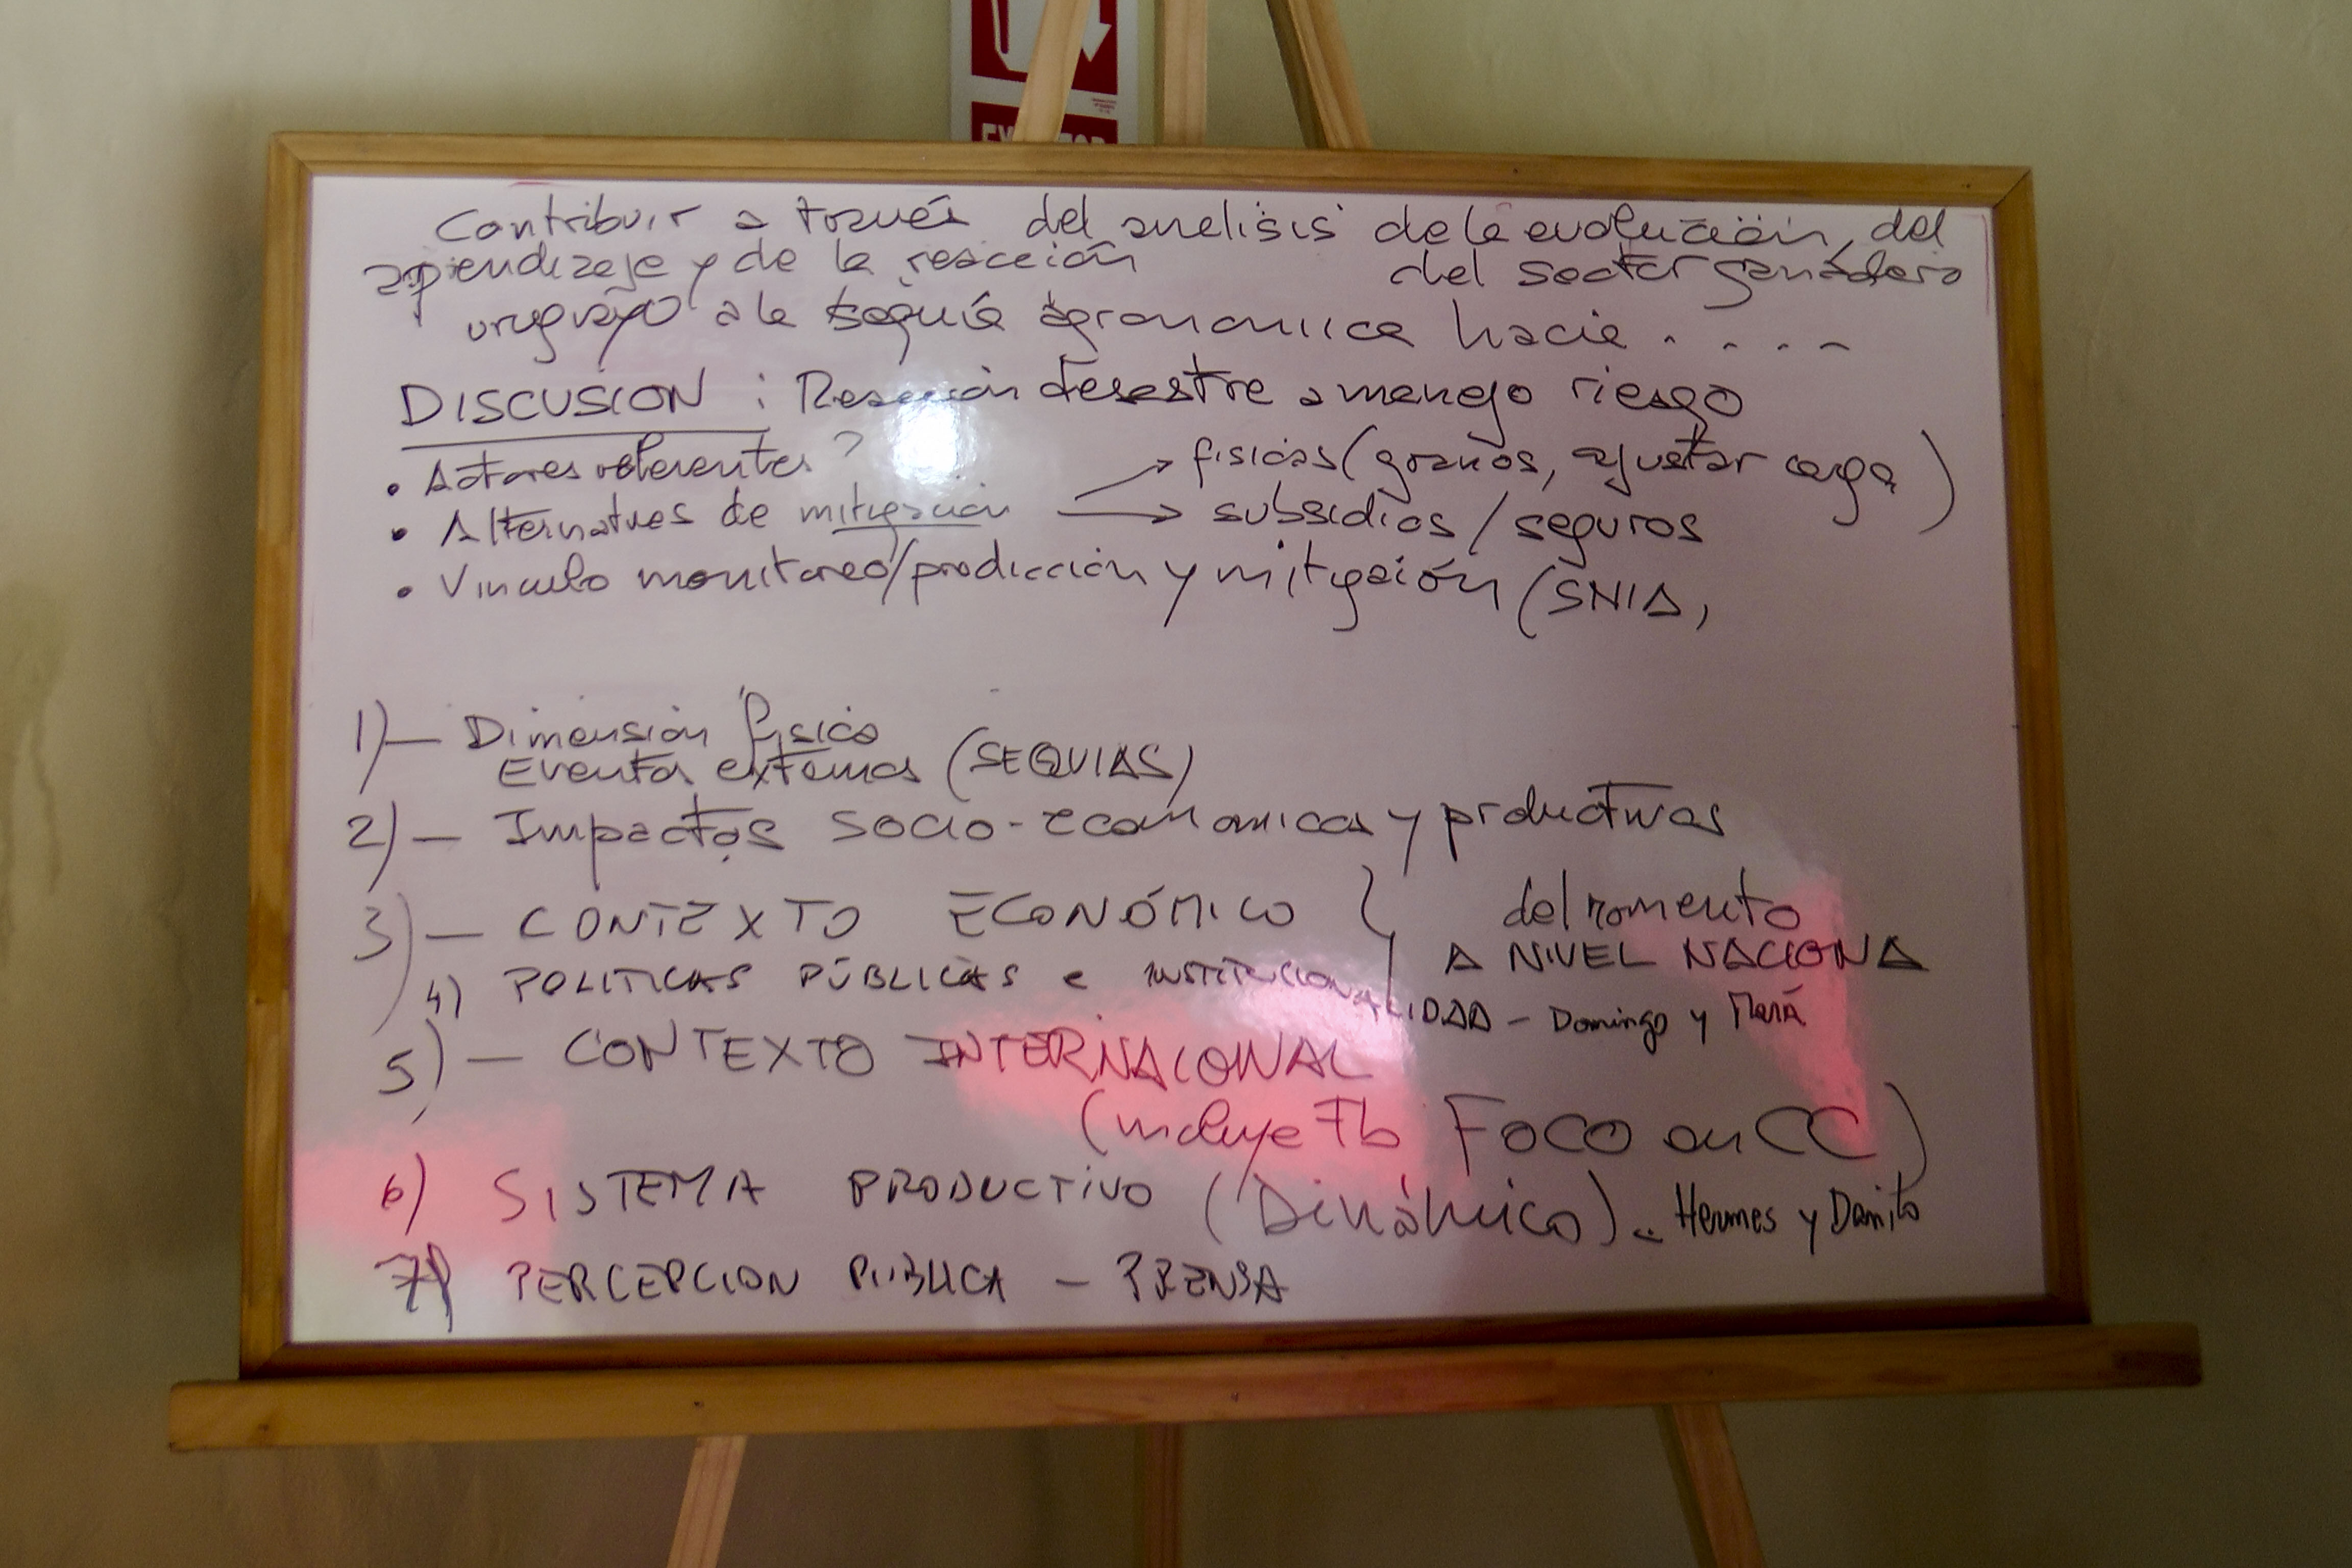 Contribuir a través del analisis de la evolución, del
aprendizaje y de la reacción del sector ganadero
uruguayo a la sequía agronomica hacia . . . .
DISCUSION : Reacción desastre a manejo riesgo
• Actores referentes ?
→ fisicas (granos, ajustar carga)
• Alternativas de mitigación → subsidios / seguros
• Vinculo monitoreo/predicción y mitigación (SNIA,
1) — Dimensión física
Eventos externos (SEQUIAS)
2) — Impactos socio-economicos y productivos
3) — CONTEXTO ECONÓMICO } del momento
A NIVEL NACIONA
4) POLITICAS PÚBLICAS e INSTITUCIONALIDAD - Domingo y María
5) — CONTEXTO INTERNACIONAL
(incluye Tb FOCO en CC)
6) SISTEMA PRODUCTIVO (Dinámico). Hermes y Danilo
7) PERCEPCION PUBLICA - PRENSA